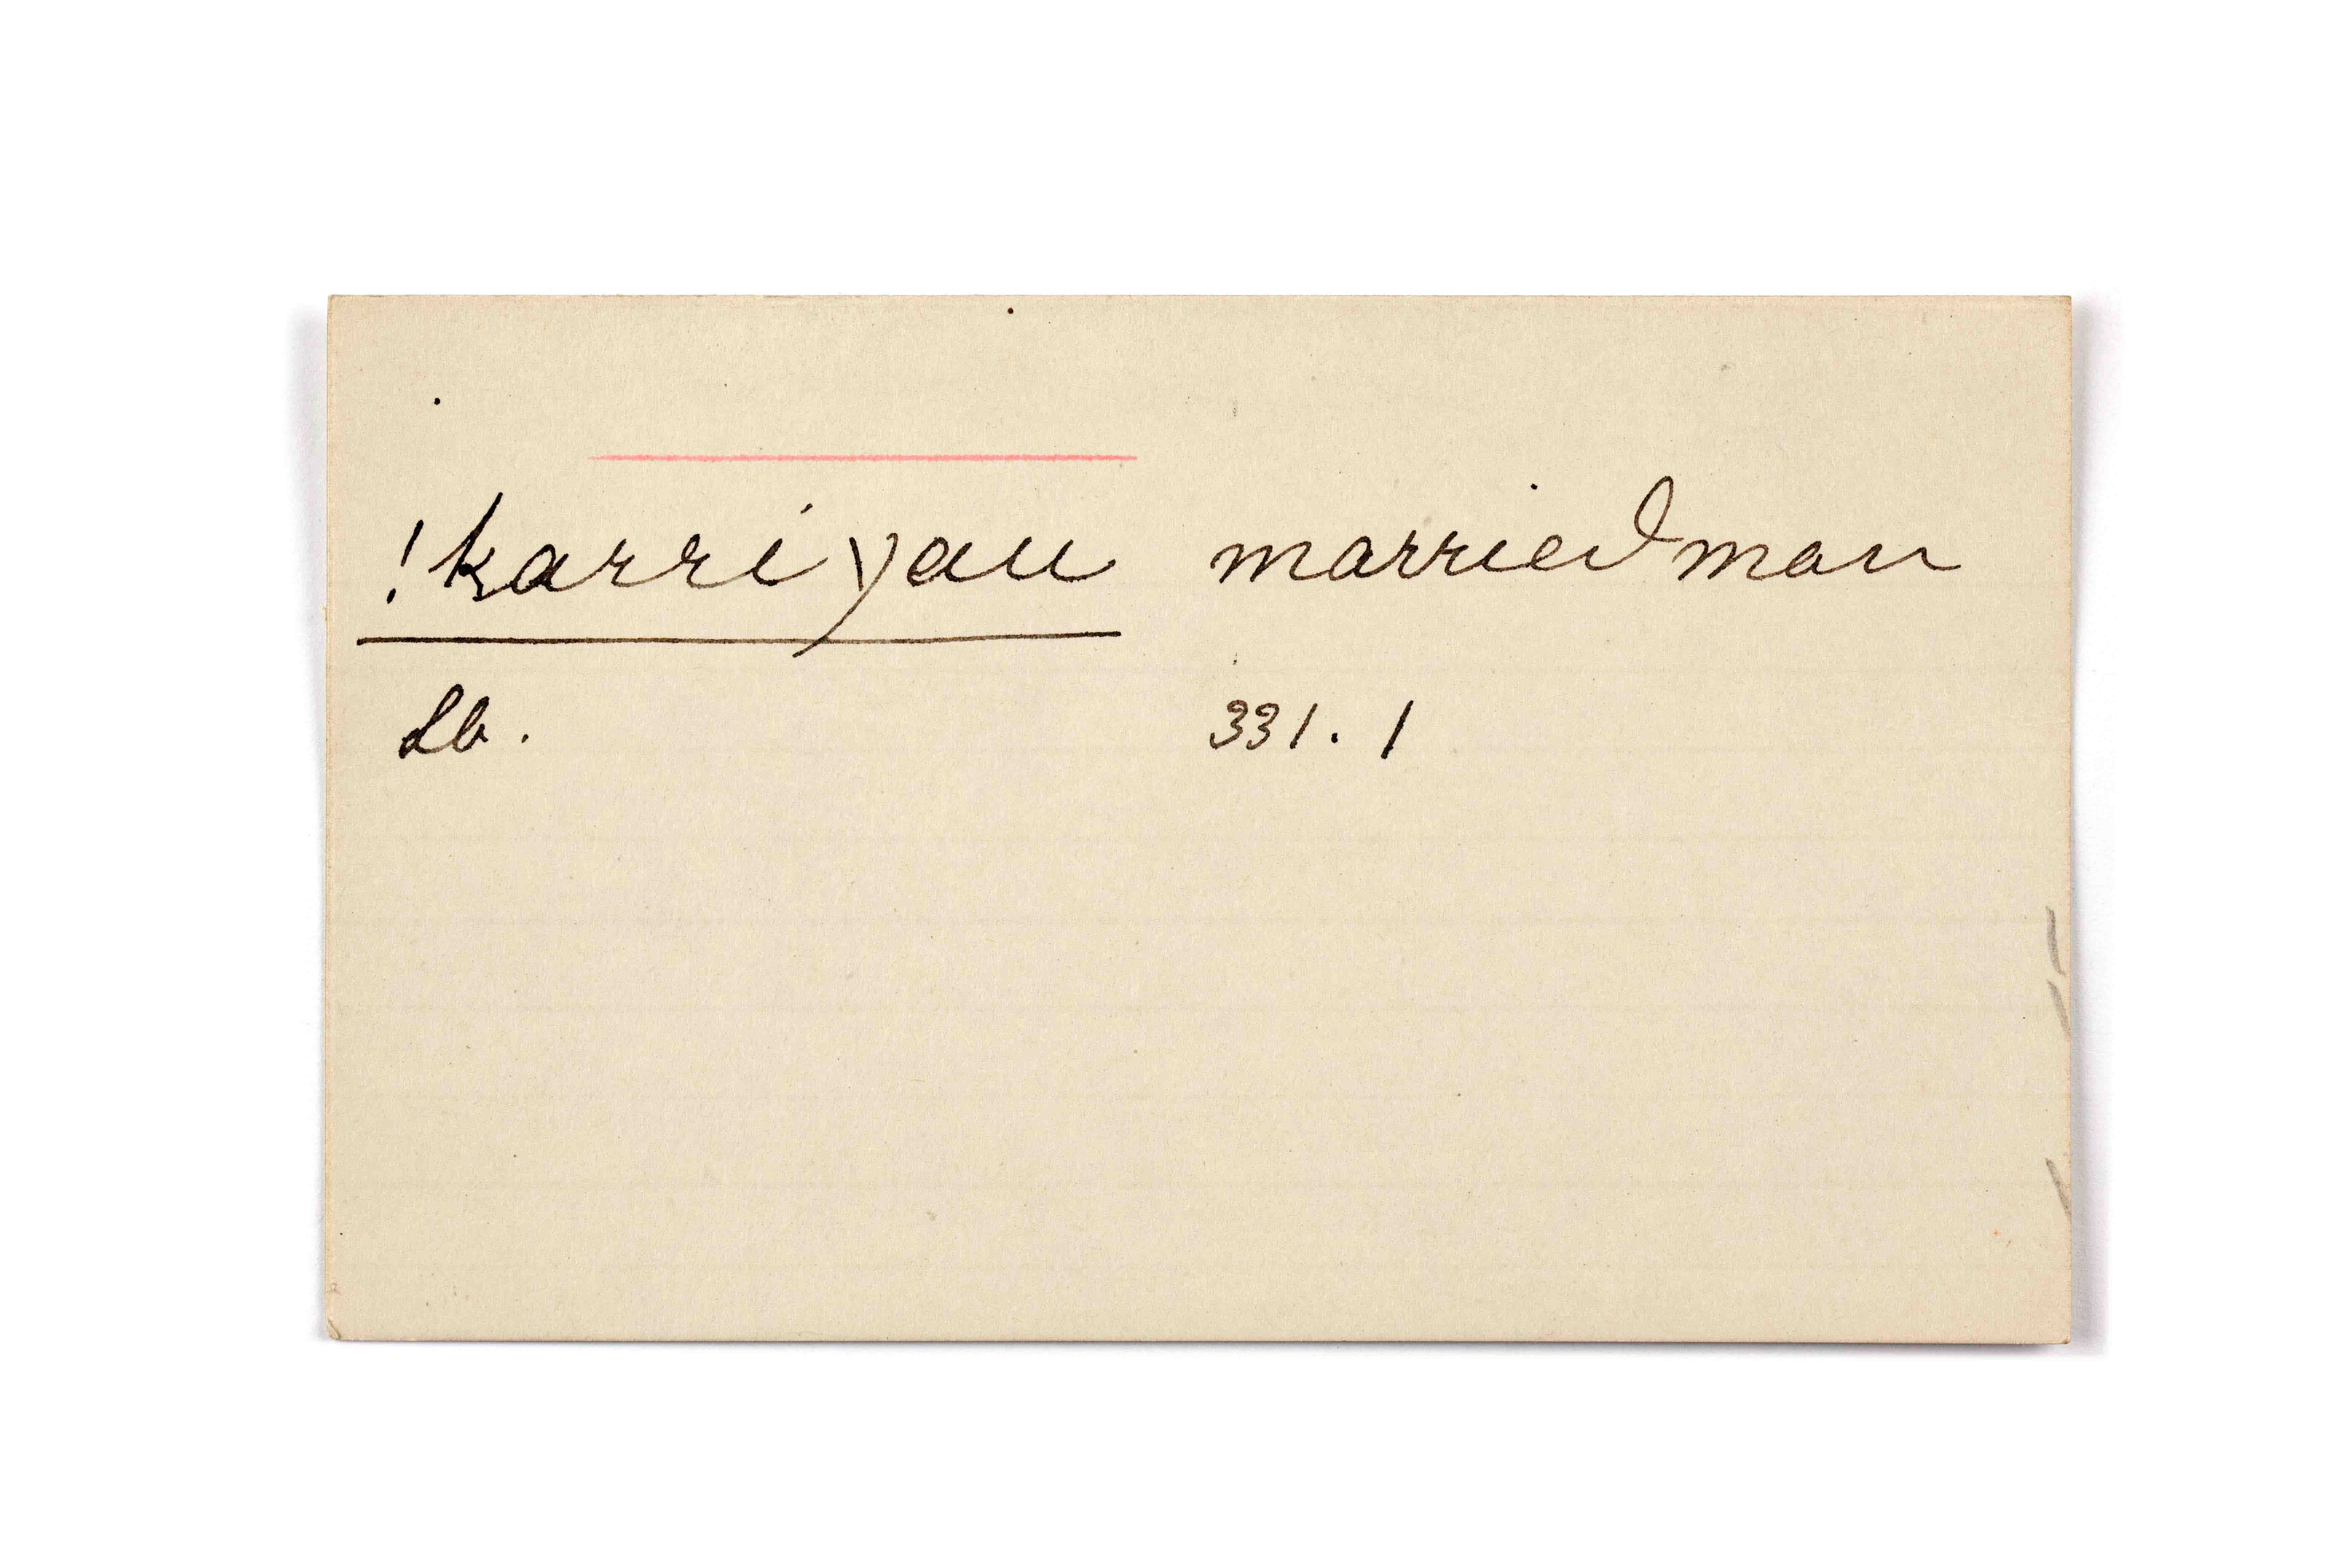 !karriyau married man
Lb. 331. 1